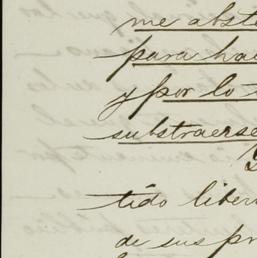 me abst
para ha
y por lo
substraerse
tido liber
de sus pr